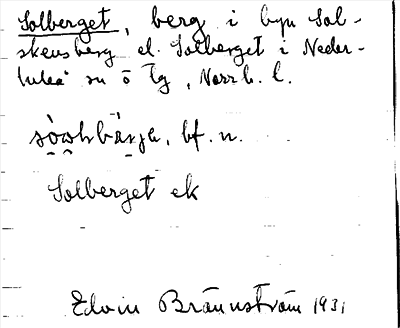 Solberget, berg i byn Sol-
skensberg el. Solberget i Neder-
luleå sn ö lg, Norrb. l.
bf. n.
Solberget ek
Edvin Brännström 1931